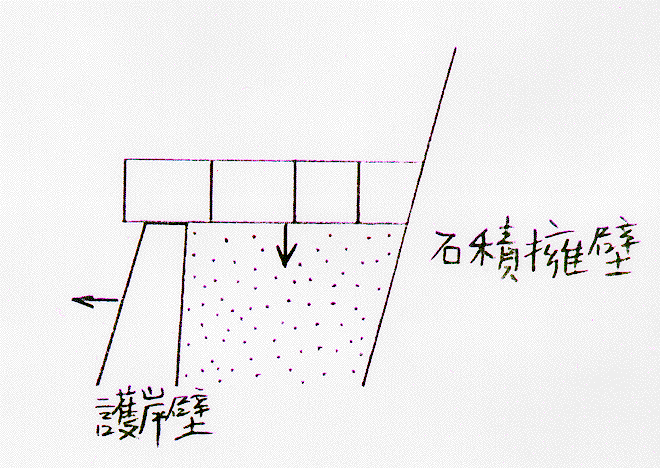 石積擁壁
護岸壁